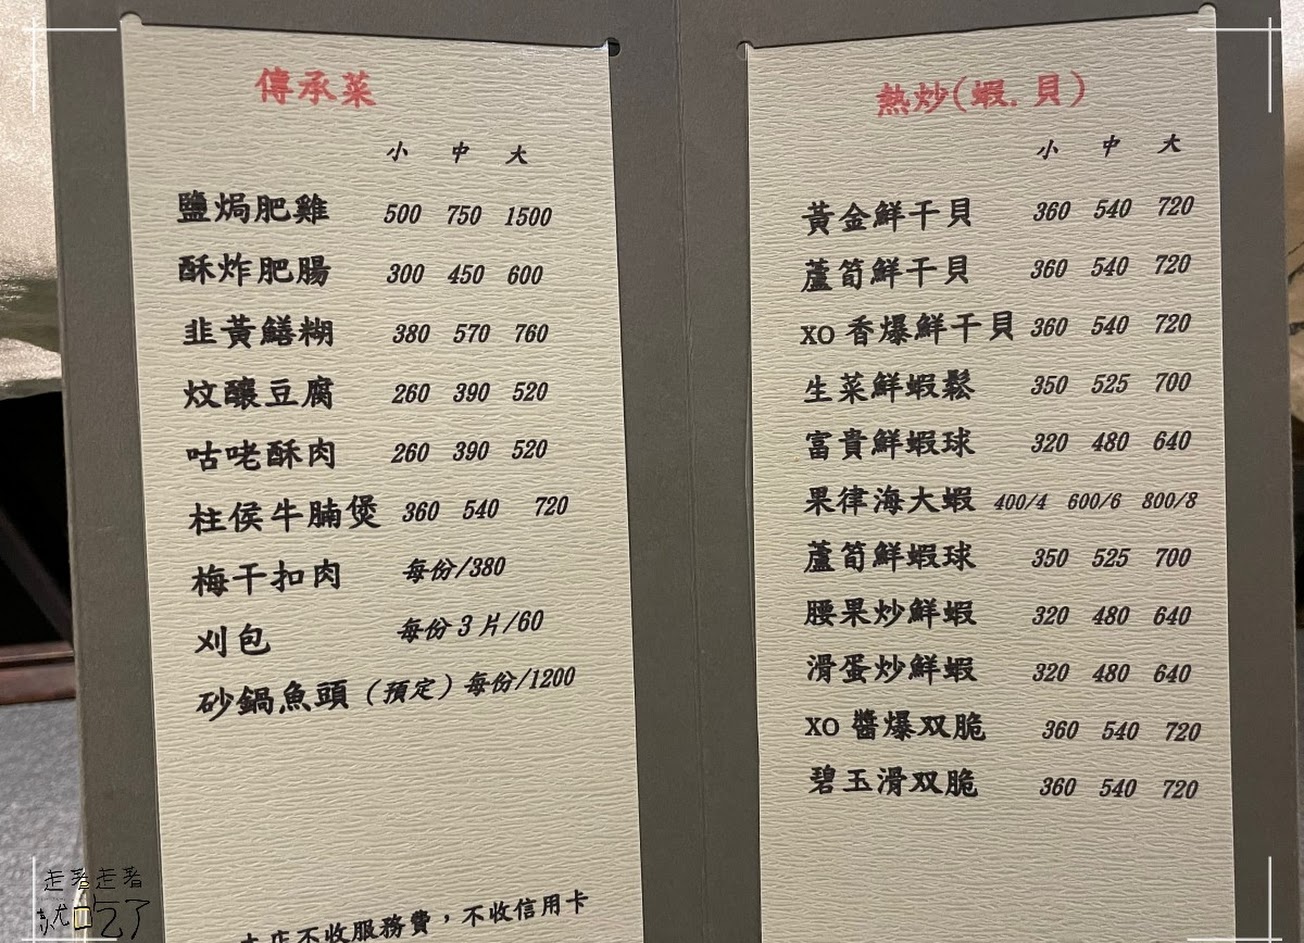 傳承菜
小 中 大
鹽焗肥雞 500 750 1500
酥炸肥腸 300 450 600
韭黃鱔糊 380 570 760
炆釀豆腐 260 390 520
咕咾酥肉 260 390 520
柱侯牛腩煲 360 540 720
梅干扣肉 每份/380
刈包 每份3片/60
砂鍋魚頭(預定)每份/1200
本店不收服務費，不收信用卡
熱炒(蝦.貝)
小 中 大
黃金鮮干貝 360 540 720
蘆筍鮮干貝 360 540 720
XO香爆鮮干貝 360 540 720
生菜鮮蝦鬆 350 525 700
富貴鮮蝦球 320 480 640
果律海大蝦 400/4 600/6 800/8
蘆筍鮮蝦球 350 525 700
腰果炒鮮蝦 320 480 640
滑蛋炒鮮蝦 320 480 640
XO醬爆双脆 360 540 720
碧玉滑双脆 360 540 720
走著走著
就吃了